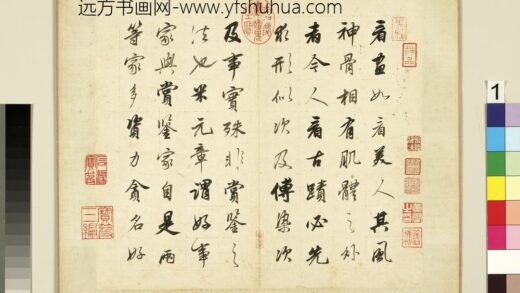 远方书画网-www.yfshuhua.com
看画如看美人其風
神骨相有肌體之外
者今人看古蹟必先
求形似次及傅染次
及事實殊非賞鑒之
法也米元章謂好事
家與賞鑒家自是兩
等家多資力貪名好
1